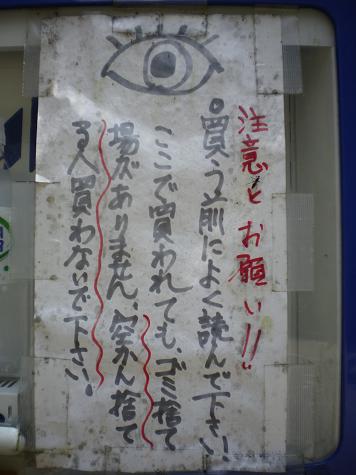 注意とお願い!!
買う前によく読んで下さい
ここで買われても、ゴミ捨て
場がありません、空かん捨て
る人買わないで下さい。